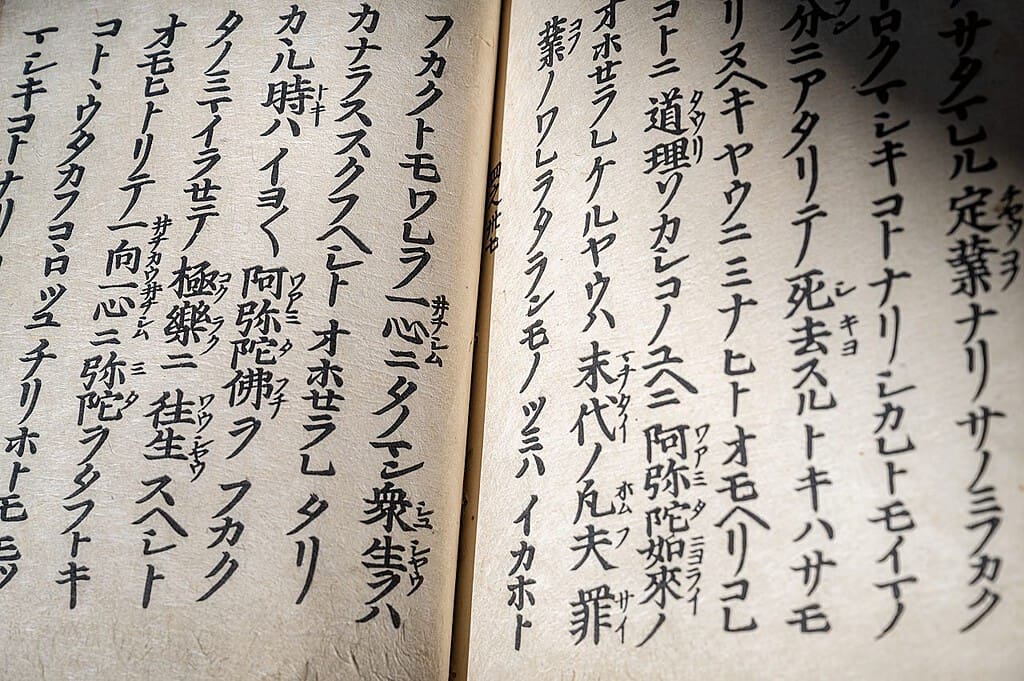 サタマレル定業ナリサノミフカク
トロクマシキコトナリシカレトモイマノ
分ニアタリテ死去スルトキハサモ
リヌヘキヤウニミナヒトオモヘリコレ
コトニ道理ソカシコノユヘニ阿弥陀如來ノ
オホセラレケルヤウハ末代ノ凡夫罪
業ノワレラタランモノツミハイカホト
フカクトモワレヲ一心ニタノマン衆生ヲハ
カナラススクフヘシトオホセラレタリ
カヽル時ハイヨ〱阿弥陀佛ヲフカク
タノミマイラセテ極樂ニ往生スヘシト
オモヒトリテ一向一心ニ弥陀ヲタフトキ
コトヽウタカフコヽロツユチリホトモモツ
マシキコトナリ